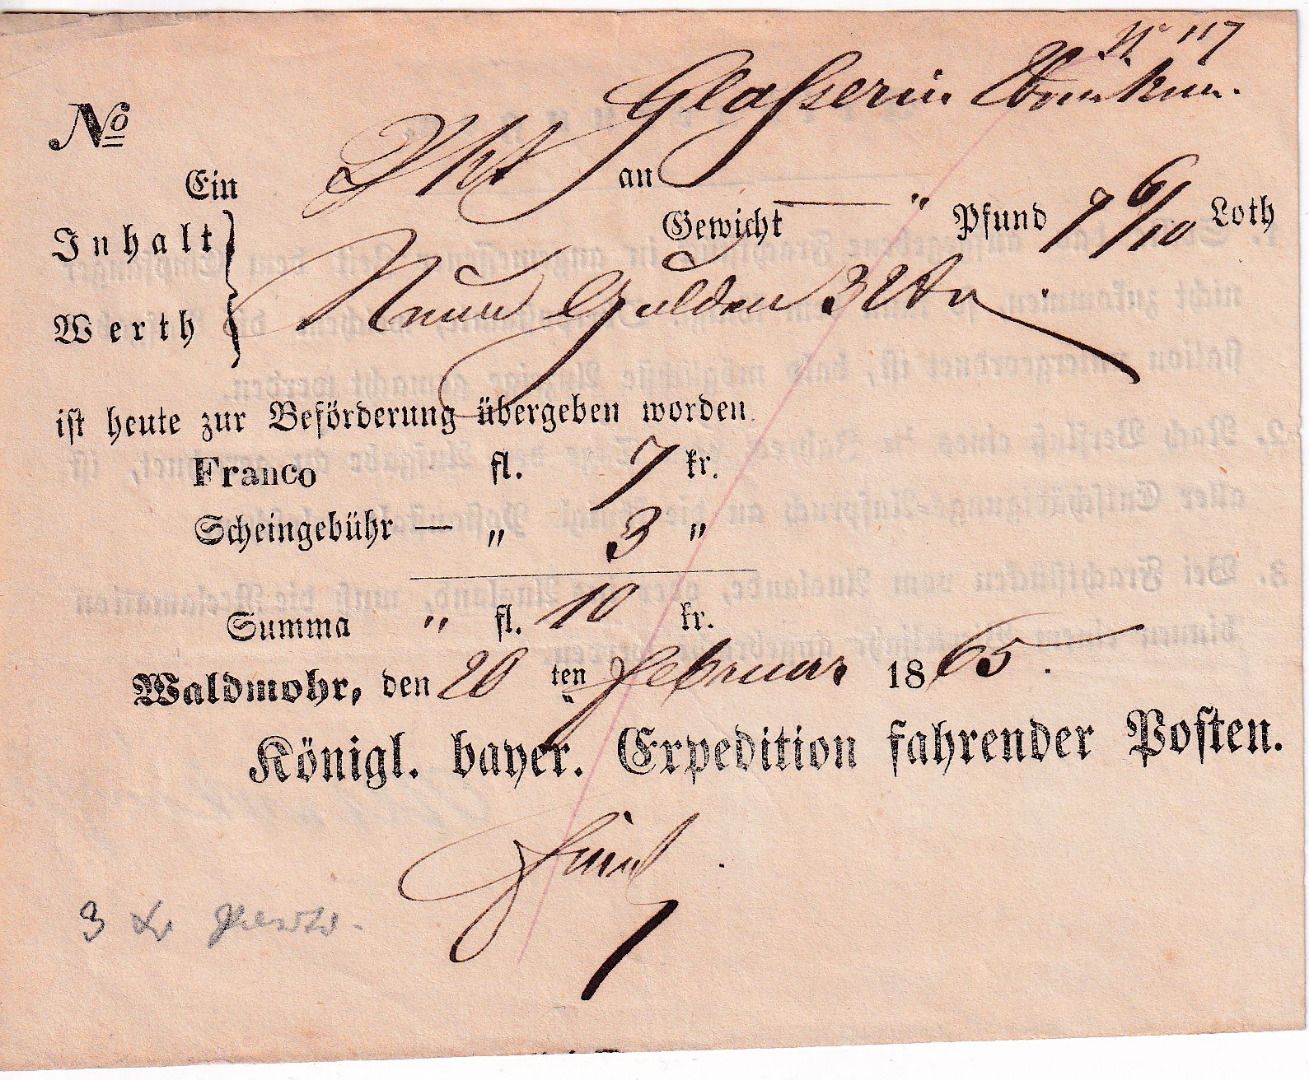 N° 117
No
Ein Pkt an Glasserin
Gewicht " Pfund 7 6/10 Loth
Inhalt
Werth } Neun Gulden 32 kr
ist heute zur Beförderung übergeben worden.
Franco fl. 7 kr.
Scheingebühr — " 3 "
Summa " fl. 10 kr.
Waldmohr, den 20 ten Februar 1865.
Königl. bayer. Expedition fahrender Posten.